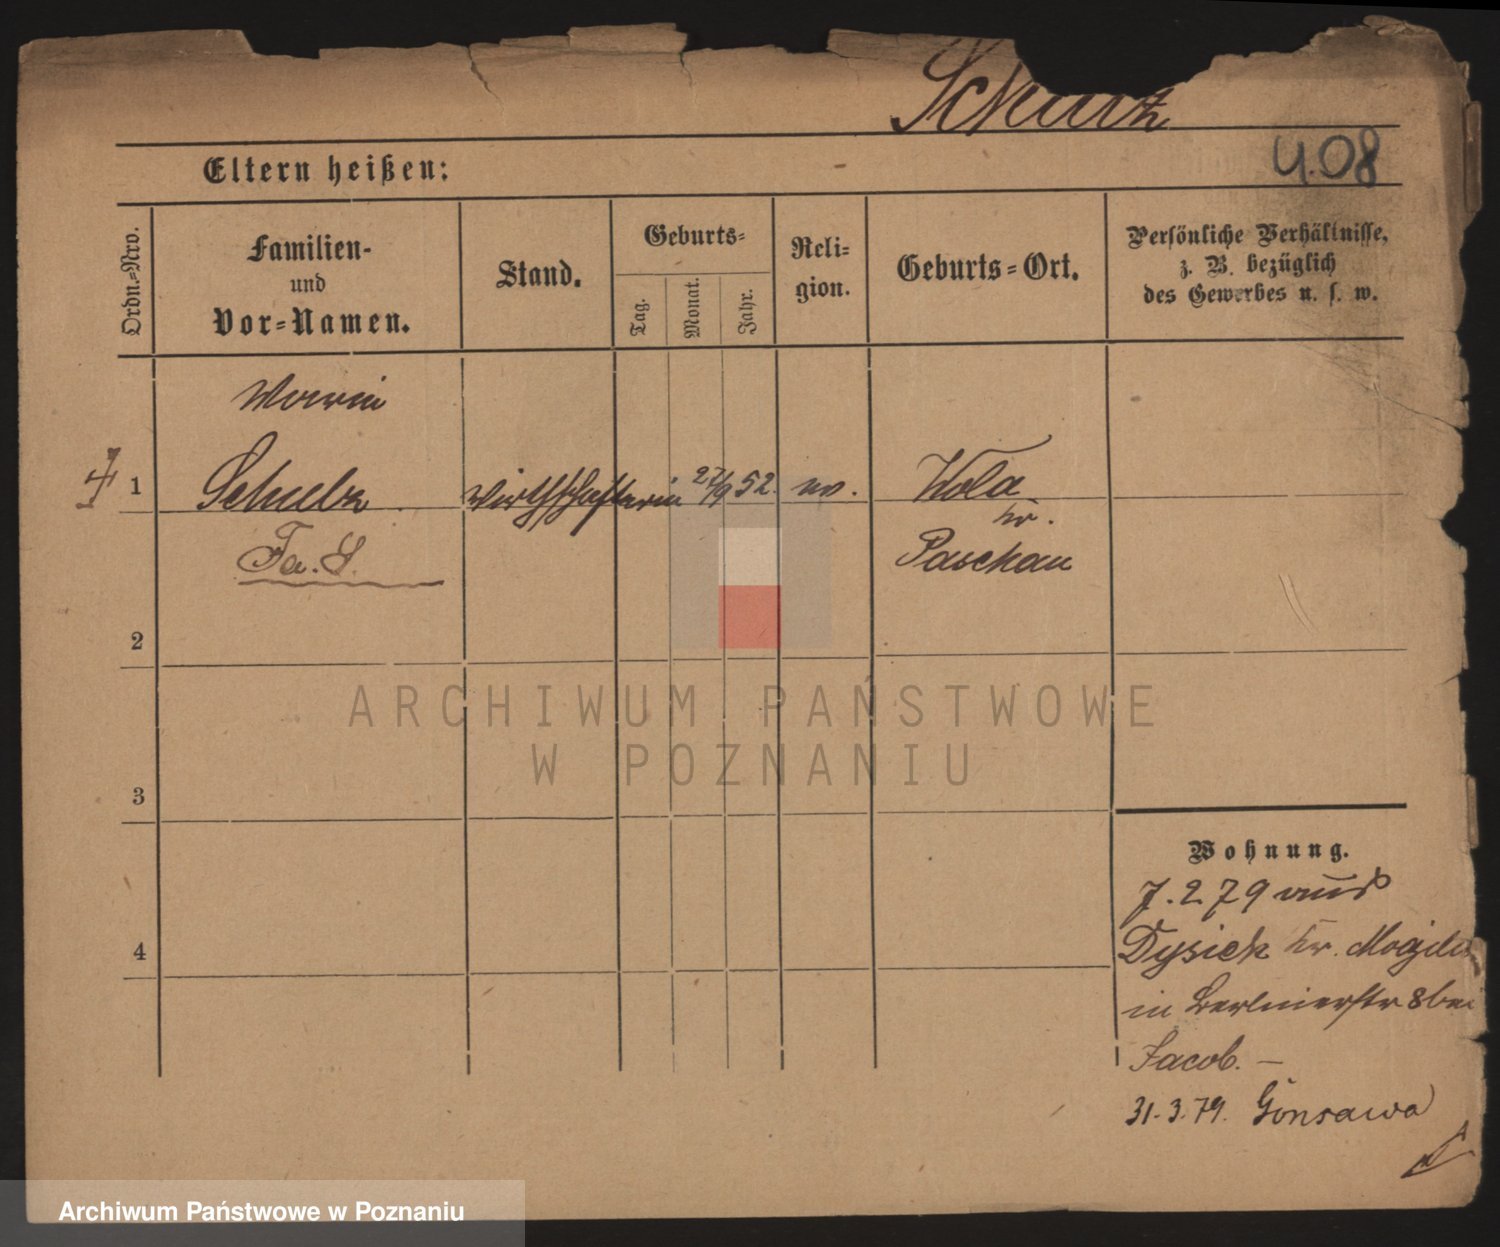 Schulz
408
Eltern heißen:
Ordn.=Nro.
Familien-
und
Vor=Namen.
Stand.
Geburts=
Tag.
Monat.
Jahr.
Reli-
gion.
Geburts=Ort.
Persönliche Verhältnisse,
z. B. bezüglich
des Gewerbes u. s. w.
1
Schulz
Wirthschafterin
27/9 52.
ev.
Wola
Kr.
Paschau
Fa. S.
2
3
4
ARCHIWUM PAŃSTWOWE
W POZNANIU
Wohnung.
7. 2 79 aus
Kr. Mogiln
in Berlinerstr 8 bei
Jacob. —
31. 3. 79. Gonsawa
Archiwum Państwowe w Poznaniu